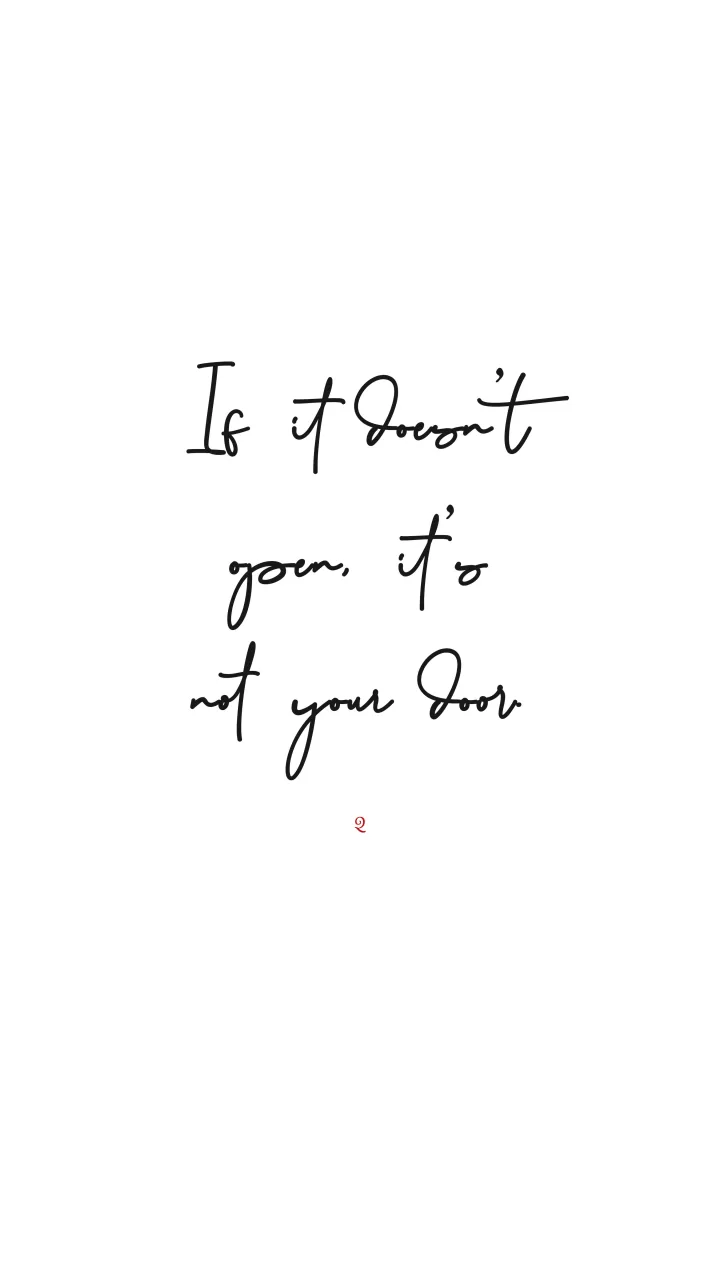 If it doesn't
open, it's
not your door.